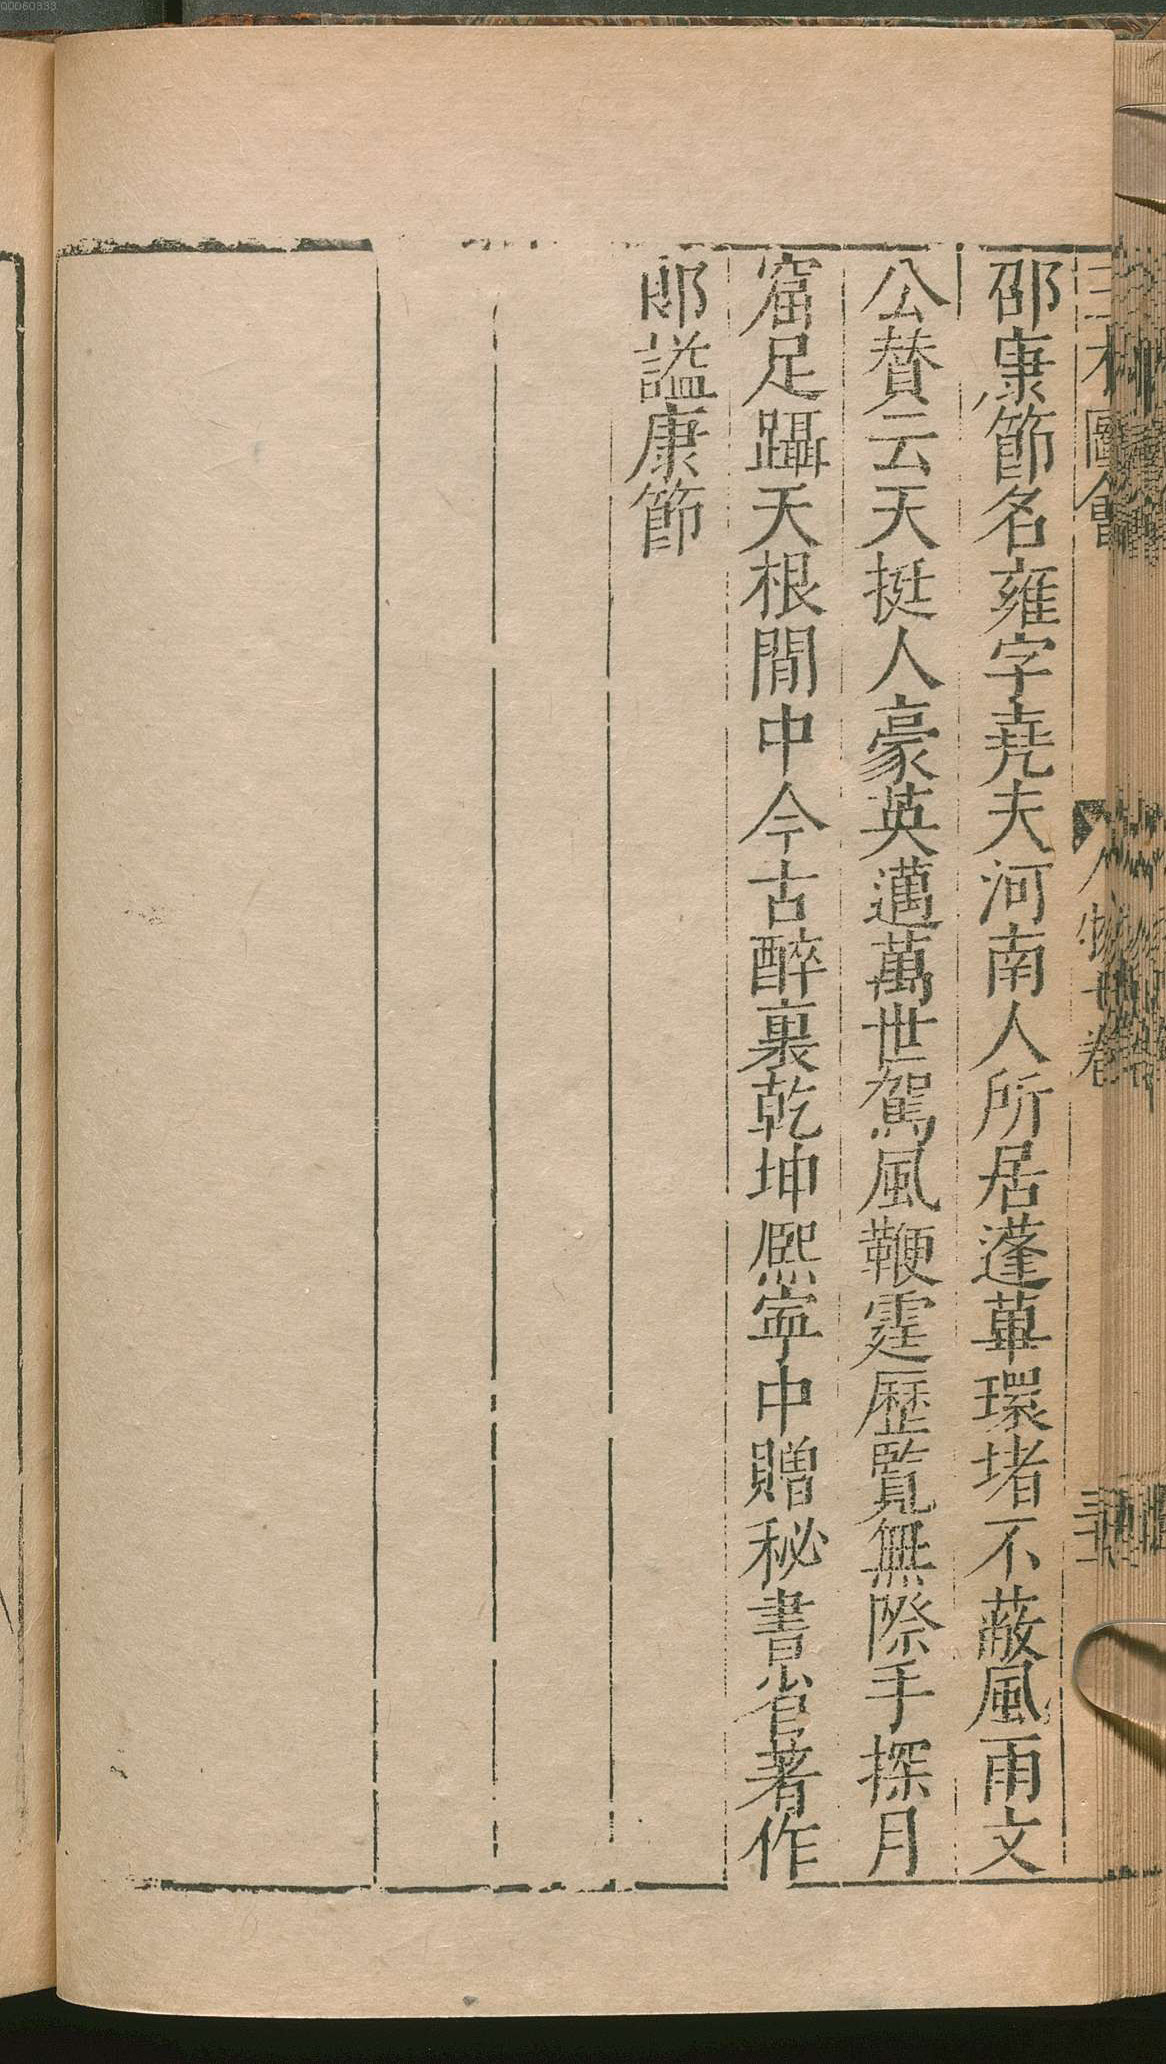 邵康節名雍字堯夫河南人所居蓬蓽環堵不蔽風雨文
公贊云天挺人豪英邁萬世駕風鞭霆歷覽無際手探月
窟足躡天根閒中今古醉裏乾坤熙寧中贈秘書省著作
郎謚康節
00060333